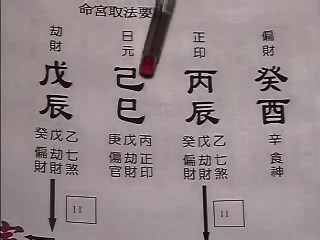 命宮取法要
偏財 正印 日元 劫財
癸 丙 己 戊
酉 辰 巳 辰
辛食神
乙七煞 戊劫財 癸偏財
丙正印 戊劫財 庚傷官
乙七煞 戊劫財 癸偏財
11 11